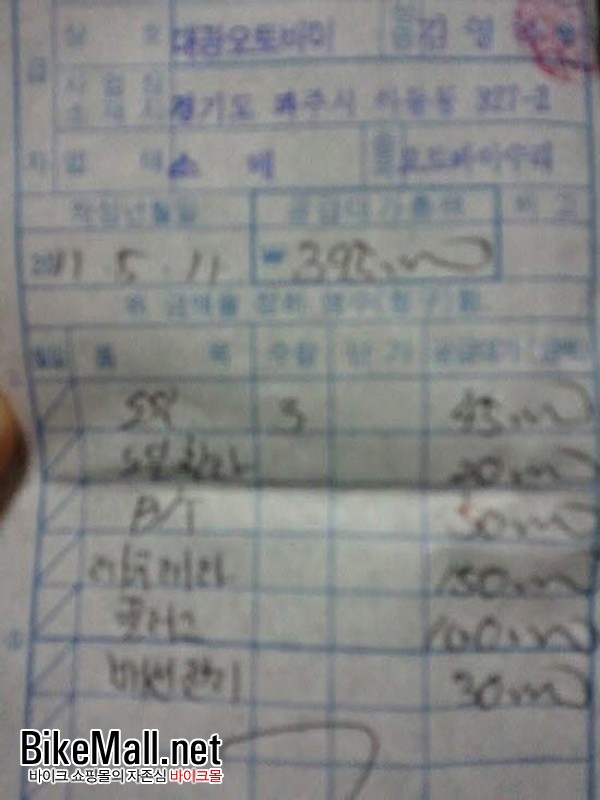 급 상 호 대광오토바이 김 영
사 업 장
소 재 지 경기도 파주시 야동동 327-2
자 업 태 소 매 오토바이수리
작성년월일 공급대가총액 비 고
2011 5 . 11 ₩ 395.000
위 금액을 정히 영수(청구)함.
월일 품 목 수량 단 가 공급대가(금액)
오일 3 45.000
오일휠타 20.000
B/T 50.000
150.000
100.000
30.000
BikeMall.net
바이크 쇼핑몰의 자존심 바이크몰